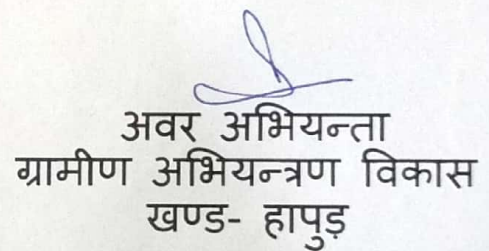 अवर अभियन्ता
ग्रामीण अभियन्त्रण विकास
खण्ड- हापुड़